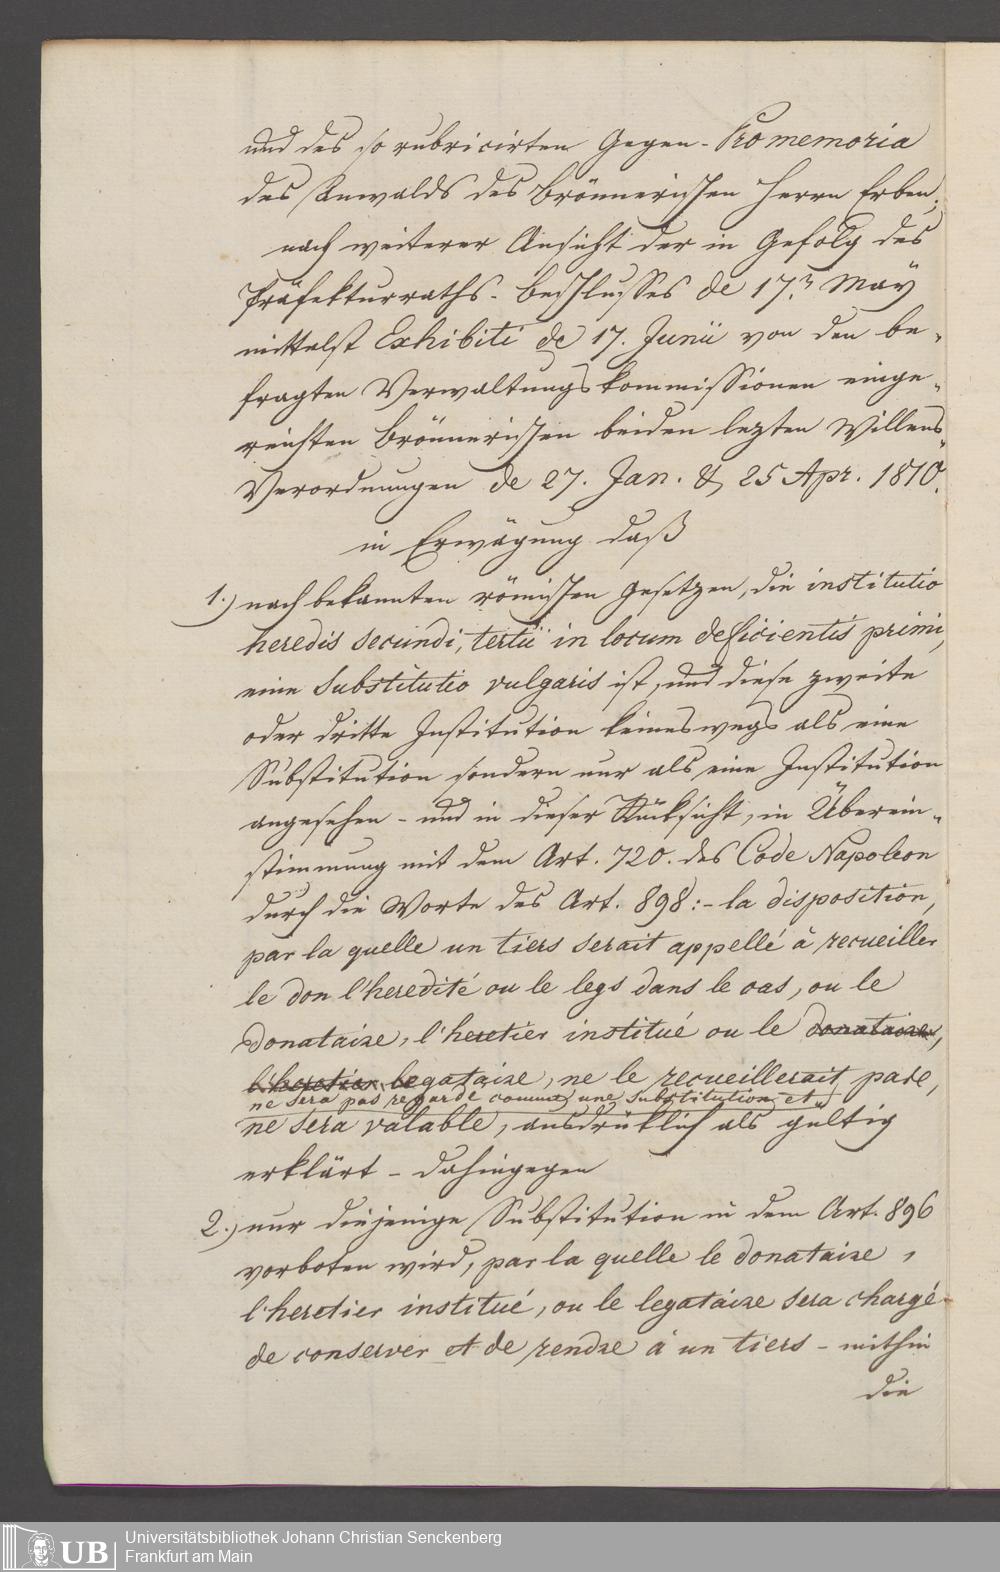 und des so rubricirten Gegen-Promemoria
des Anwalds des Brönnerischen Herrn Erben,
nach weiterer Ansicht der in Gefolg des
Präfekturraths-Beschlusses de 17.n May
mittelst Exhibiti de 17. Junii von den be-
fragten Verwaltungskommissionen einge-
reichten Brönnerischen beiden lezten Willens-
Verordnungen de 27. Jan. & 25 Apr. 1810.
in Erwägung daß
1.) nach bekannten römischen Gesetzen, die institutio
heredis secundi, tertii in locum deficientis primi,
eine Substitutio vulgaris ist, und diese zweite
oder dritte Institution keineswegs als eine
Substitution sondern nur als eine Institution
angesehen - und in dieser Rücksicht, in Überein-
stimmung mit dem Art. 720. des Code Napoleon
durch die Worte des Art. 898:- la disposition,
par la quelle un tiers serait appellé à recueiller
le don l'heredité ou le legs dans le cas, ou le
donataire, l'heretier institué ou le donataire,
l'heretier le legataire, ne le recueillerait pare,
ne sera pas regardé comme une substitution et
ne sera valable, ausdrüklich als gültig
erklärt - dahingegen
2.) nur diejenige Substitution in dem Art. 896
vorboten wird, par la quelle le donataire,
l'heretier institué, ou le legataire sera chargé
de conserver et de rendre à un tiers - mithin
die
Universitätsbibliothek Johann Christian Senckenberg
Frankfurt am Main
UB